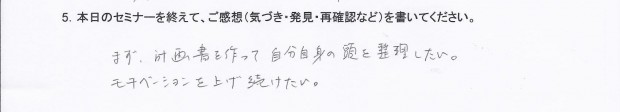 5. 本日のセミナーを終えて、ご感想（気づき・発見・再確認など）を書いてください。
まず、計画書を作って自分自身の頭を整理したい。
モチベーションを上げ続けたい。